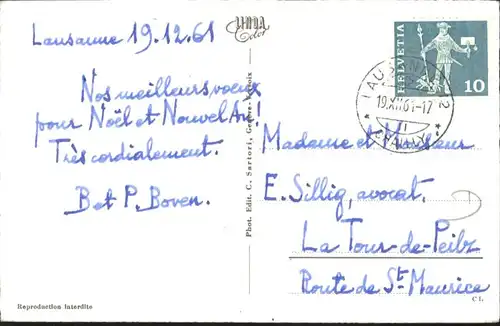 Lausanne 19.12.61
Nos meilleurs voeux
pour Noël et Nouvel An!
Très cordialement.
B et P. Boven.
Reproduction interdite
Phot. Edit. C. Sartori, Genève
LINDA
Color
HELVETIA
10
LAUSANNE 2
19.XII.61-17
Madame et Monsieur
E. Sillig, avocat.
La Tour-de-Peilz
Route de St-Maurice